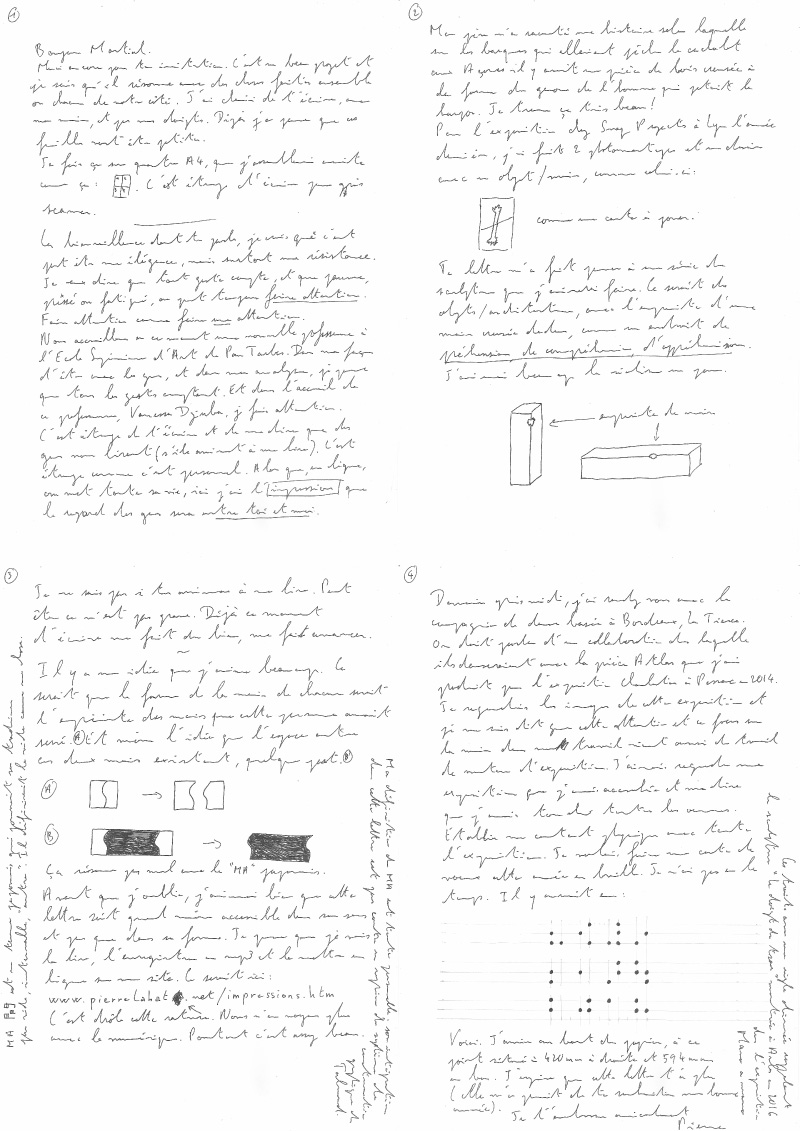 1
Bonjour Martial.
Merci encore pour ton invitation. C'est un beau projet et
je sais qu'il résonne avec des choses faites ensemble
ou chacun de notre côté. J'ai choisi de t'écrire, avec
ma main, et pas mes doigts. Déjà je pense que ces
feuilles sont trop petites.
Je fais ça sur quatre A4, que j'assemblerai ensuite
comme ça : . C'est étrange d'écrire pour après
scanner.
La bienveillance dont tu parles, je crois que c'est
peut être une élégance, mais surtout une résistance.
Je veux dire que tout geste compte, et que pauvre,
pressé ou fatigué, on peut toujours faire attention.
Faire attention comme faire une attention.
Nous accueillons en ce moment une nouvelle professeure à
l'Ecole Supérieure d'Art de Pau Tarbes. Dans ma façon
d'être avec les gens, et dans mon analyse, je pense
que tous les gestes comptent. Et dans l'accueil de
ce professeur, Vanessa, je fais attention.
C'est étrange de t'écrire et de me dire que des
gens nous liront (s'ils arrivent à me lire). C'est
étrange comme c'est personnel. Alors que, en ligne,
on met toute sa vie, ici j'ai l'impression que
le regard des gens sera entre toi et moi.
2
Mon père m'a raconté une histoire selon laquelle
sur les barques qui allaient pêcher le cachalot
aux Açores il y avait une pièce de bois creusée à
la forme du genou de l'homme qui jetait le
harpon. Je trouve ça très beau !
Pour l'exposition chez Snap Projects à Lyon l'année
dernière, j'ai fait 2 photomontages et un dessin
avec un objet/main, comme celui-ci :
comme une carte à jouer.
Ta lettre m'a fait penser à une série de
sculptures que j'aimerais faire. Ce serait des
objets/architectures, avec l'empreinte d'une
main creusée dedans, comme un endroit de
préhension, de compréhension, d'appréhension.
J'aimerais beaucoup les réaliser un jour.
empreinte de main
3
Je ne sais pas si tu arriveras à me lire. Peut
être ce n'est pas grave. Déjà ce moment
d'écriture me fait du bien, me fait avancer.
~
Il y a une idée que j'aime beaucoup. Ce
serait que la forme de la main de chacun serait
l'empreinte des mains que cette personne aurait
serré. A Et même l'idée que l'espace entre
ces deux mains existant, quelque part. B
A
B
Ça résonne pas mal avec le "MA" japonais.
Avant que j'oublie, j'aimerais bien que cette
lettre soit quand même accessible dans son sens
et pas que dans sa forme. Je pense que je vais
la lire, l'enregistrer en mp3 et la mettre en
ligne sur mon site. Ce serait ici :
www.pierrelahat.net/impressions.htm
C'est drôle cette rature. Nous n'en voyons plus
avec le numérique. Pourtant c'est assez beau.
MA est un terme japonais qui pourrait se traduire
par vide, intervalle, entre. Il définirait le vide comme un lien.
Ma définition de MA est toute personnelle, son intégration
dans cette lettre est
4
Demain après midi, j'ai rendez vous avec la
compagnie de danse basée à Bordeaux, La Tierce.
On doit parler d'une collaboration dans laquelle
ils danseraient avec la pièce Atlas que j'ai
produit pour l'exposition à Pessac en 2014.
Je regardais les images de cette exposition et
je me suis dit que cette attention et ce focus sur
la main dans mon travail vient aussi du travail
de montage d'exposition. J'aimais regarder une
exposition que j'avais accrochée et me dire
que j'avais touché toutes les œuvres.
Etablir un contact physique avec toute
l'exposition. Je voulais faire une carte de
vœux cette année en braille. Je n'ai pas eu le
temps. Il y aurait eu :
Voici. J'arrive au bout du papier, à ce
point situé à 420 mm à droite et 594 mm
en bas. J'espère que cette lettre t'a plu
(elle m'a permis de te souhaiter une bonne
année). Je t'embrasse amicalement
Pierre